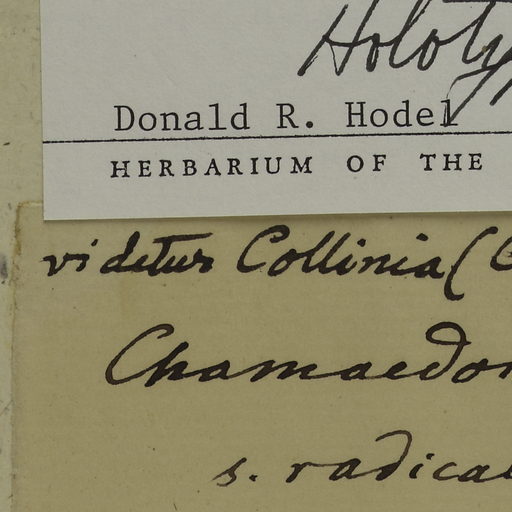 Holoty
Donald R. Hodel
HERBARIUM OF THE
videtur Collinia (
Chamaedor
s. radical